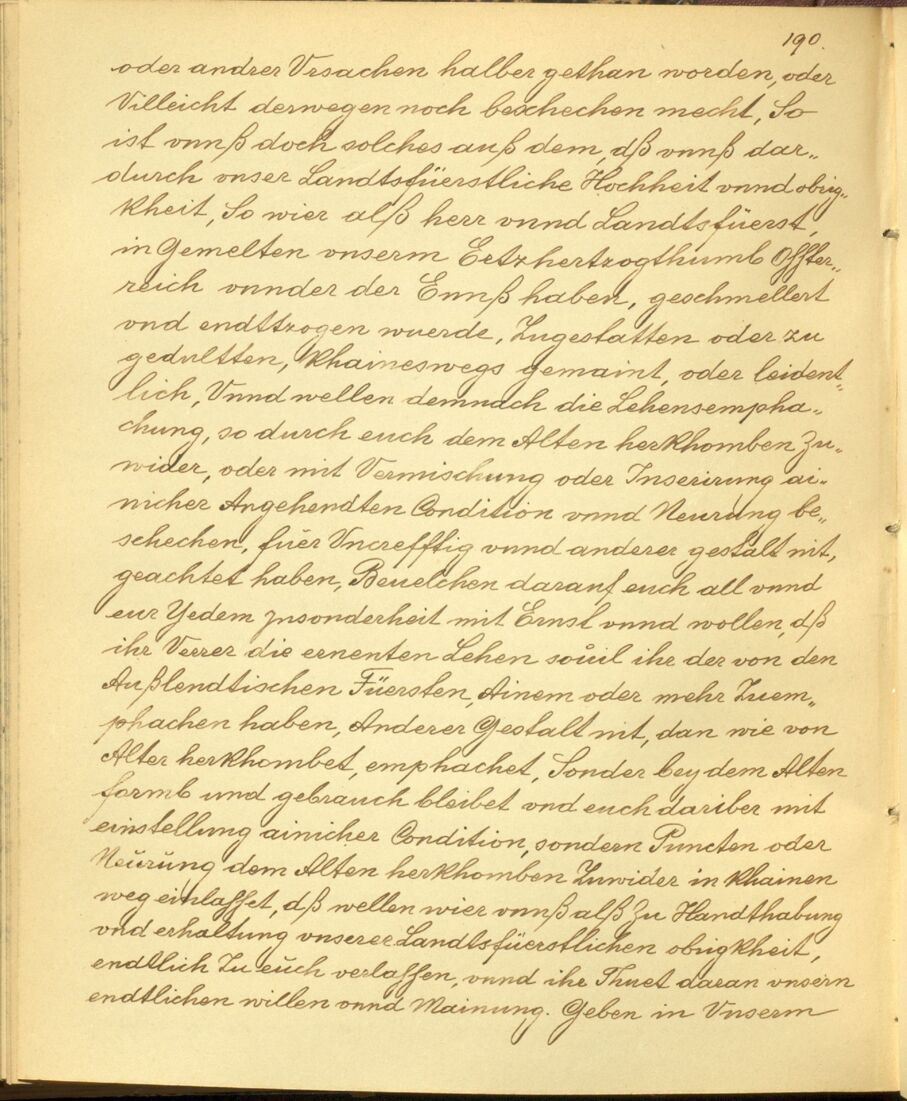 190.
oder andrer Vrsachen halber gethan worden, oder
Villeicht derwegen noch beschechen mecht, So
ist vnnß doch solches auß dem, dß vnnß dar„
durch vnser Landtsfüerstliche Hochheit vnnd obrig„
kheit, So wier alß herr vnnd Landtsfüerst,
in Gemelten vnserm Ertzhertzogthumb Ofster„
reich vnnder der Ennß haben, geschmellert
vnd endttzogen wuerde, Zugestatten oder zu
gedultten, khaineswegs gemaint, oder leident„
lich, Vnnd wellen demnach die Lehensempha„
chung, so durch euch dem Alten herkhomben Zu„
wider, oder mit Vermischung oder Inserirung ai„
nicher Angehendten Condition vnnd Neurung be„
schechen, füer Vncrefftig vnnd anderer gestalt nit,
geachtet haben, Beuelchen darauf euch all vnnd
eur Yedem Insonderheit mit Ernst vnnd wollen, dß
ihr Verrer die ernenten Lehen souil ihr der von den
Außlendtischen Füersten, Ainem oder mehr Zuem„
phachen haben, Anderer Gestalt nit, dan wie von
Alter herkhombet, emphachet, Sonder bey dem Alten
formb und gebrauch bleibet vnd euch dariber mit
einstellung ainicher Condition, sondern Puncten oder
Neürüng dem Alten herkhomben Zuwider in khainen
weg einlasset, dß wellen wier vnnß alß Zu Handthabung
vnd erhaltung vnserer Landtsfüerstlichen obrigkheit,
endtlich Zu euch verlassen, vnnd ihr Thuet daran vnsern
endtlichen willen vnnd Mainung. Geben in Vnserm